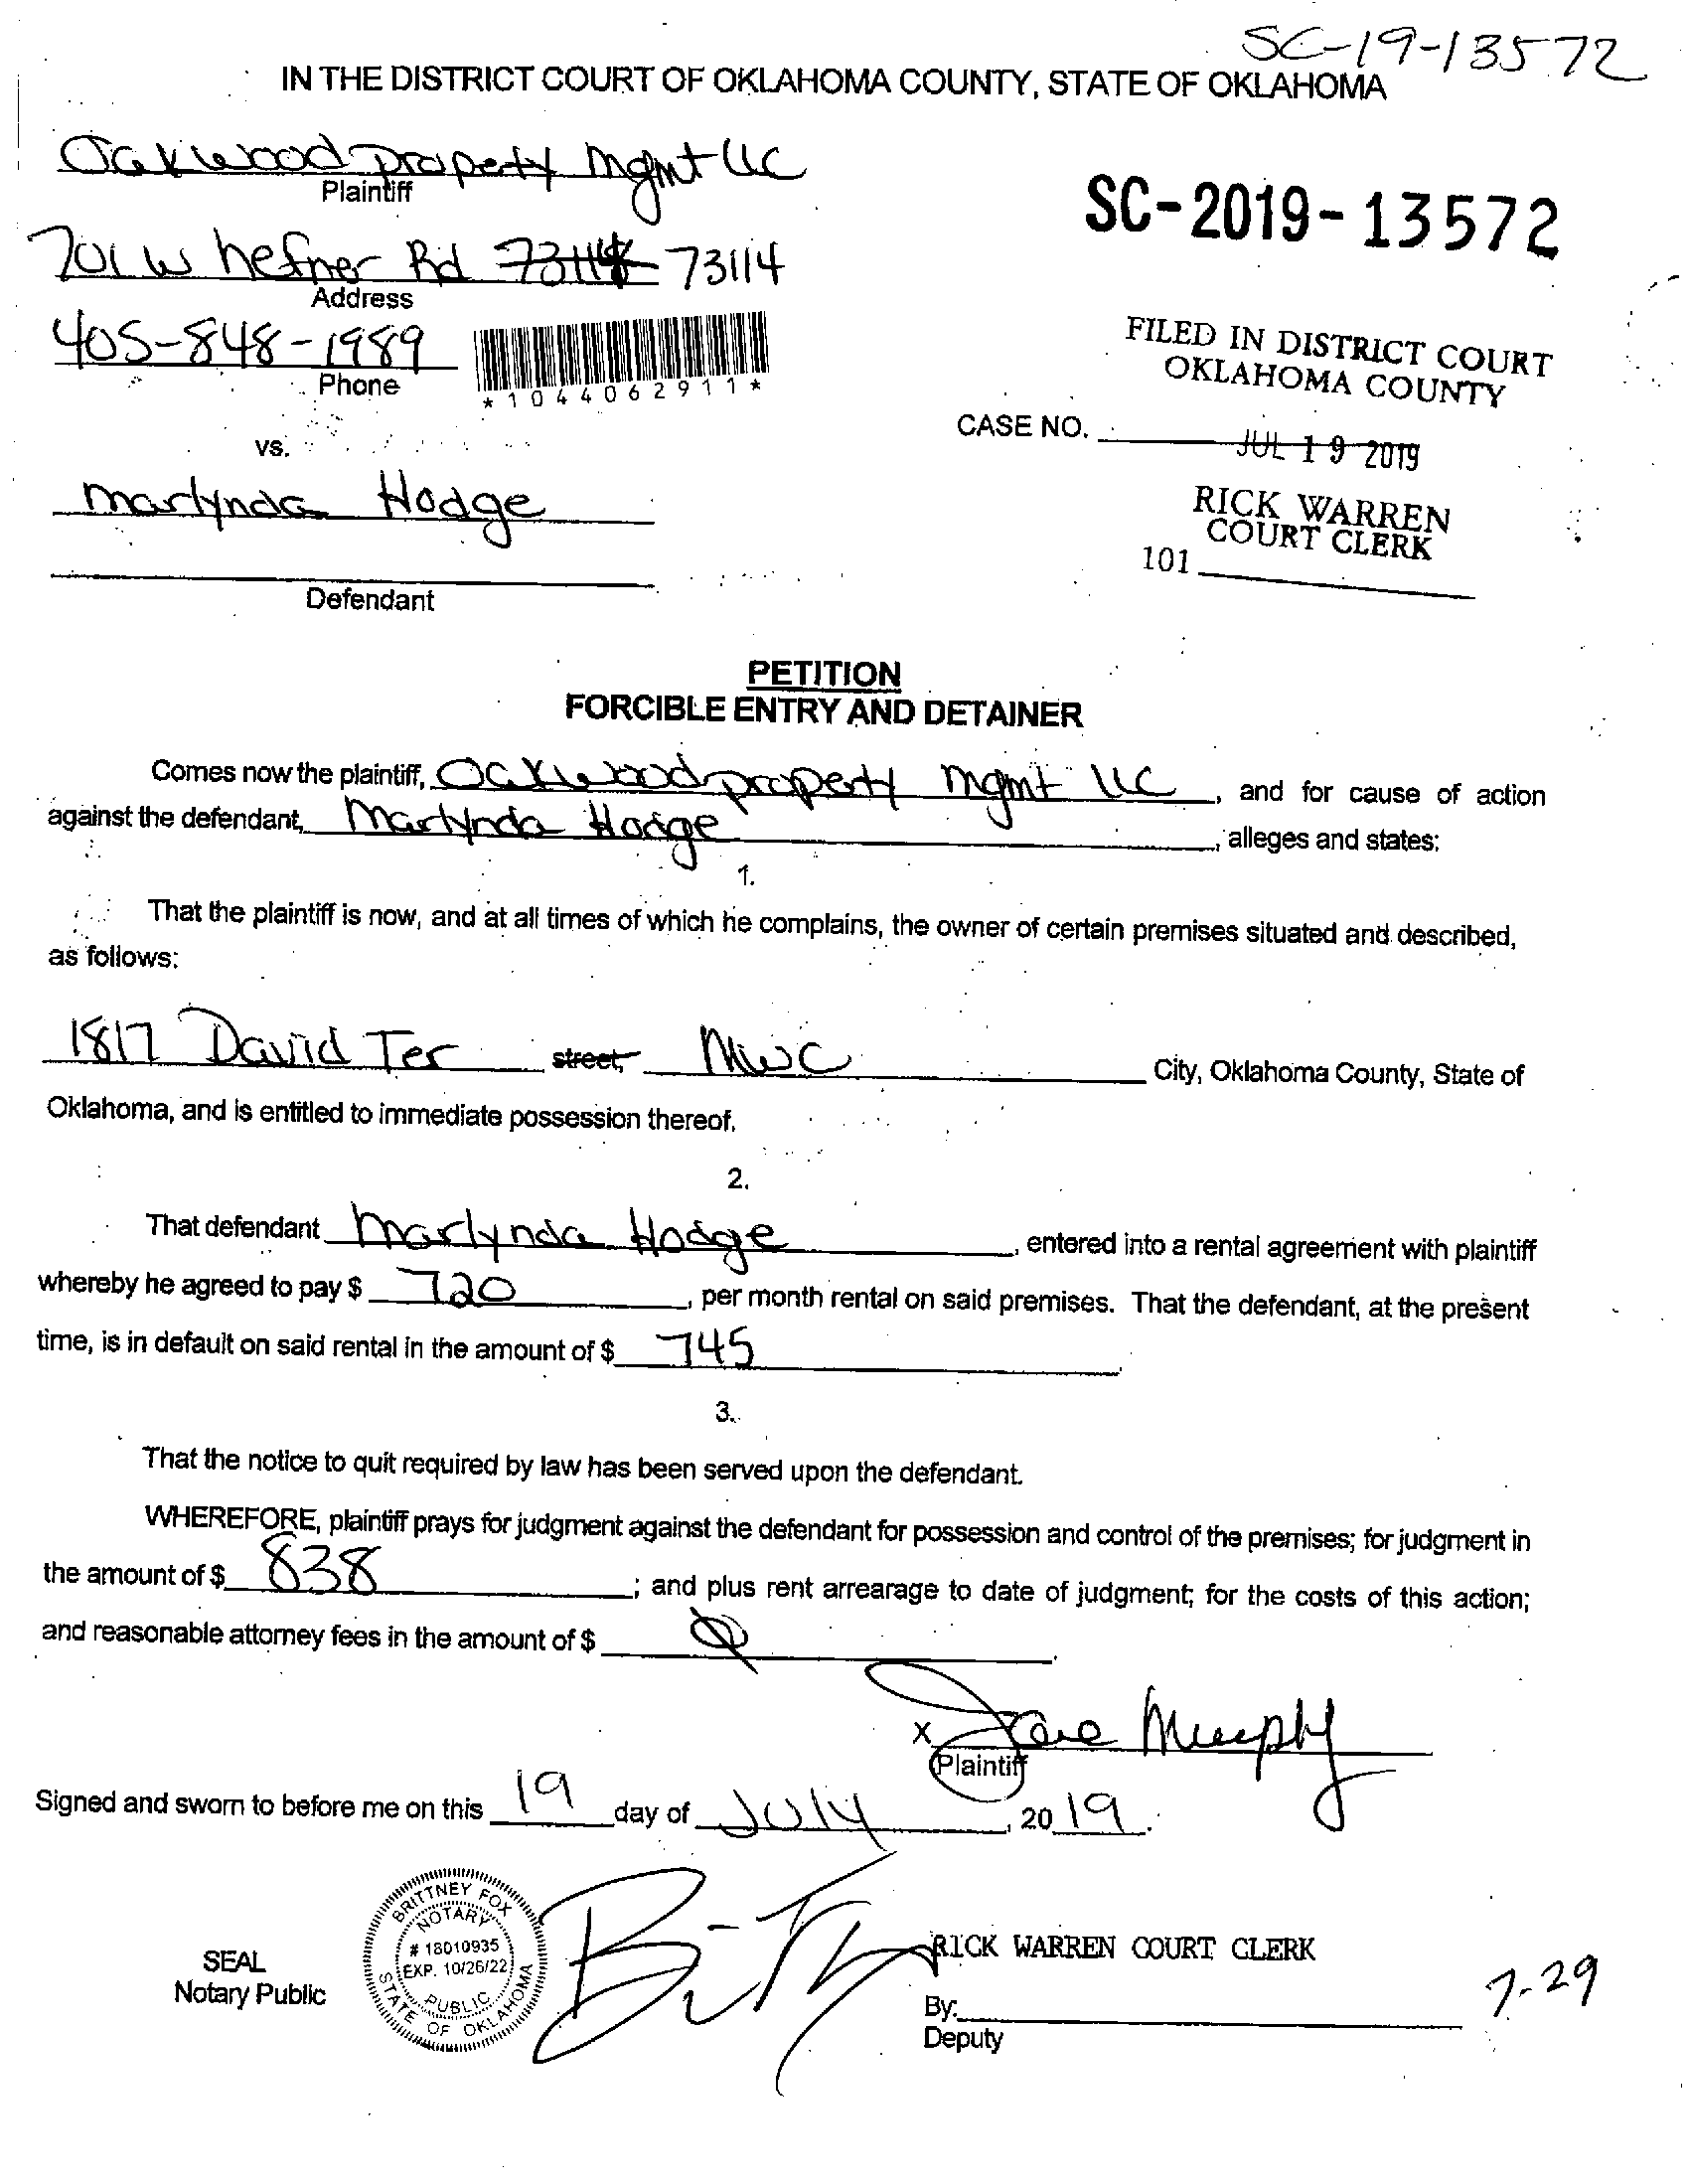 SC-19-13572
IN THE DISTRICT COURT OF OKLAHOMA COUNTY, STATE OF OKLAHOMA
Oakwood property mgmt llc
Plaintiff
SC-2019-13572
701 W hefner Rd 73114
Address
405-848-1989
Phone
*1044062911*
FILED IN DISTRICT COURT
OKLAHOMA COUNTY
CASE NO.
JUL 19 2019
vs.
marlynda Hodge
RICK WARREN
COURT CLERK
101
Defendant
PETITION
FORCIBLE ENTRY AND DETAINER
Comes now the plaintiff, Oakwood property mgmt llc, and for cause of action
against the defendant, Marlynda Hodge, alleges and states:
1.
That the plaintiff is now, and at all times of which he complains, the owner of certain premises situated and described,
as follows:
1817 David Ter street, MWC City, Oklahoma County, State of
Oklahoma, and is entitled to immediate possession thereof.
2.
That defendant Marlynda Hodge, entered into a rental agreement with plaintiff
whereby he agreed to pay $ 720, per month rental on said premises. That the defendant, at the present
time, is in default on said rental in the amount of $ 745.
3.
That the notice to quit required by law has been served upon the defendant.
WHEREFORE, plaintiff prays for judgment against the defendant for possession and control of the premises; for judgment in
the amount of $ 838; and plus rent arrearage to date of judgment; for the costs of this action;
and reasonable attorney fees in the amount of $ 0.
X Murphy
Plaintiff
Signed and sworn to before me on this 19 day of July, 2019.
BRITTNEY FOX
NOTARY
# 18010935
EXP. 10/26/22
PUBLIC
STATE OF OKLAHOMA
SEAL
Notary Public
RICK WARREN COURT CLERK
By:
Deputy
7-29